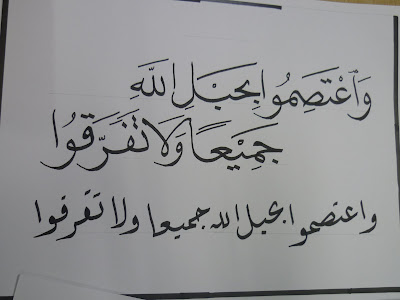 وَاعْتَصِمُوا بِحَبْلِ اللَّهِ
جَمِيْعًا وَلَا تَفَرَّقُوا
واعتصموا بحبل الله جميعا ولا تفرقوا